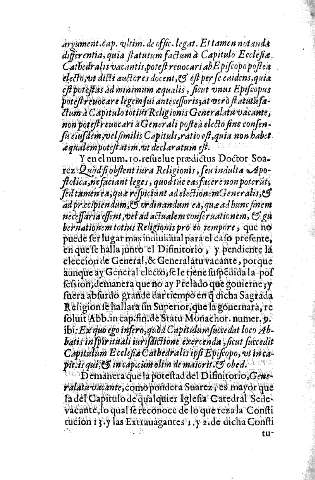 argument. cap. vltim. de offic. legat. Et tamen notanda
differentia, quia statutum factum à Capitulo Ecclesiæ
Cathedralis vacantis, potest revocari ab Episcopo posteà
electo, vt dicti auctores docent, & est per se evidens, quia
est potestas ad minimum æqualis, sicut vnus Episcopus
potest revocare legem sui antecessoris, at verò statutũ fa-
ctum à Capitulo totius Religionis Generalatu vacante,
non potest revocari à Generali posteà electo sine consen-
su eiusdem, vel similis Capituli, ratio est, quia non habet
æqualem potestatem, vt declaratum est.
Y en el num. 10. resuelve prædictus Doctor Soa-
rez Quòd si obstent iura Religionis, seu indulta Apo-
stolica, ne faciant leges, quod tùc eas facere non poterũt,
sed tamen ea, quæ respiciunt ad electionem Generalis, &
ad præcipiendum, & ordinandum ea, quæ ad hunc finem
necessaria essent, vel ad actualem conservationem, & gu
bernationem totius Religionis pro eo tempore, que no
puede ser lugar mas individual para el caso presente,
en que se halla junto el Difinitorio, y pendiente la
eleccion de General, & Generalatu vacante, porque
aunque ay General electo, se le tiene suspendida la pos
session, de manera que no ay Prelado que govierne, y
fuera absurdo grande dar tiempo en q̃ dicha Sagrada
Religion se hallara sin Superior, que la governara, re
solvit Abb. in cap. fin. de Statu Monachor. numer. 9.
ibi: Ex quo ego infero, quòd Capitulum succedat loco Ab-
batis in spiritualis iurisdictione exercenda, sicut succedit
Capitulum Ecclesiæ Cathedralis ipsi Episcopo, vt in ca-
pit. is qui, & in capitulum olim de maiorit. & obed.
De manera que la potestad del Difinitorio, Gene-
ralatu vacante, como pondera Suarez, es mayor que
la del Capitulo de qualquier Iglesia Catedral Sede-
vacante, lo qual se reconoce de lo que reza la Consti
tucion 13. y las Extravagantes 1. y 2. de dicha Consti
tu-